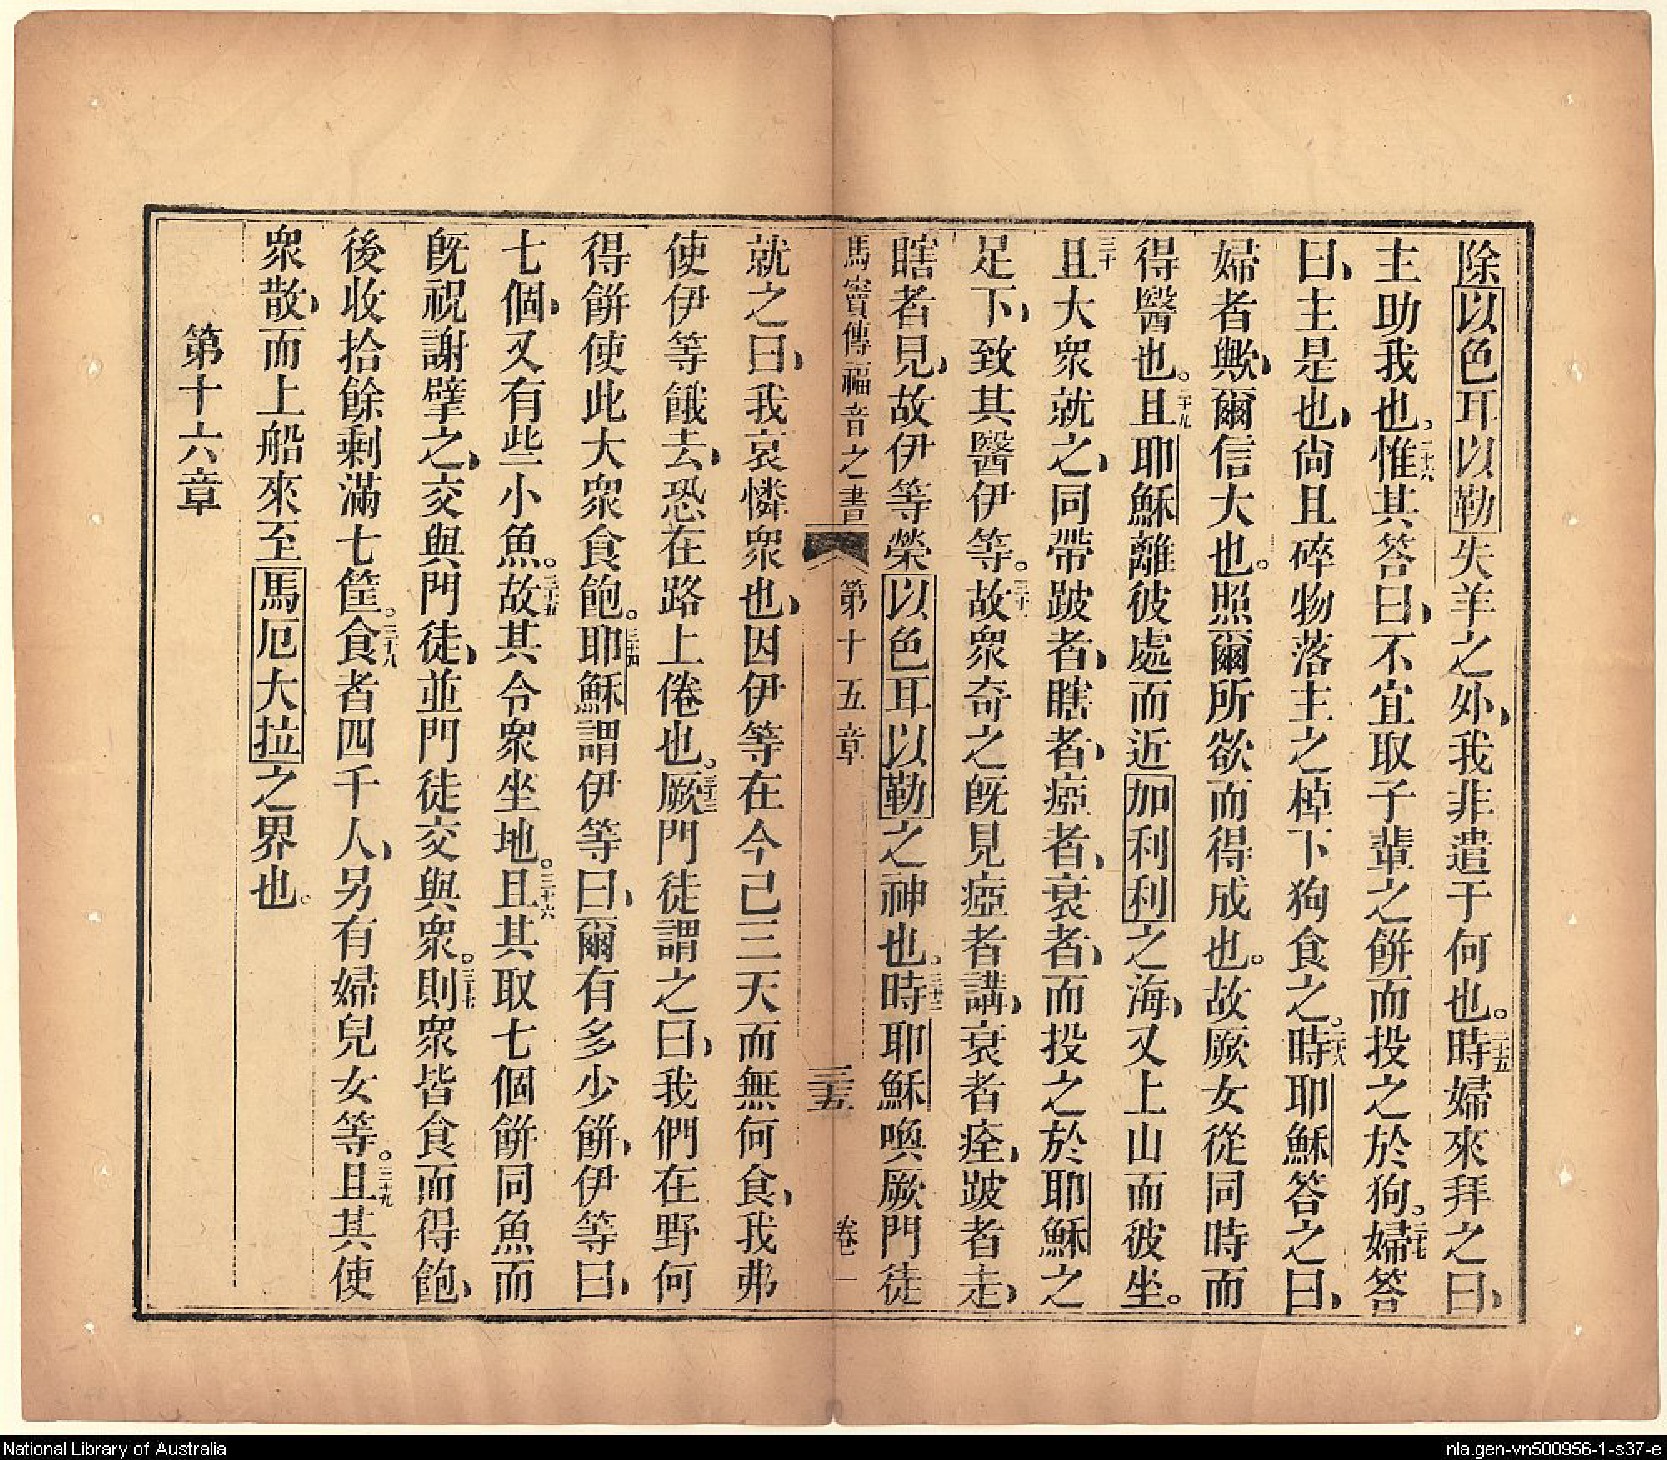 除以色耳以勒失羊之外、我非遣于何也。二十五時婦來拜之曰、
主助我也。二十六惟其答曰、不宜取子輩之餅而投之於狗。二十七婦答
曰、主是也、尙且碎物落主之棹下狗食之。二十八時耶穌答之曰、
婦者歟、爾信大也。照爾所欲而得成也。故厥女從同時而
得醫也。二十九且耶穌離彼處而近加利利之海、又上山而彼坐。
三十且大衆就之、同帶跛者、瞎者、瘂者、衰者、而投之於耶穌之
足下、致其醫伊等。三十一故衆奇之旣見瘂者講、衰者痊、跛者走、
瞎者見、故伊等榮以色耳以勒之神也。三十二時耶穌喚厥門徒
馬竇傳福音之書 第十五章 三十五 卷一
就之曰、我哀憐衆也、因伊等在今已三天而無何食、我弗
使伊等餓去、恐在路上倦也。三十三厥門徒謂之曰、我們在野何
得餅使此大衆食飽。三十四耶穌謂伊等曰、爾有多少餅、伊等曰、
七個、又有些小魚。三十五故其令衆坐地。三十六且其取七個餅同魚而
旣祝謝擘之、交與門徒、並門徒交與衆。三十七則衆皆食而得飽、
後收拾餘剩滿七筐。三十八食者四千人、另有婦兒女等。三十九且其使
衆散、而上船來至馬厄大拉之界也。
第十六章
National Library of Australia
nla.gen-vn500956-1-s37-e